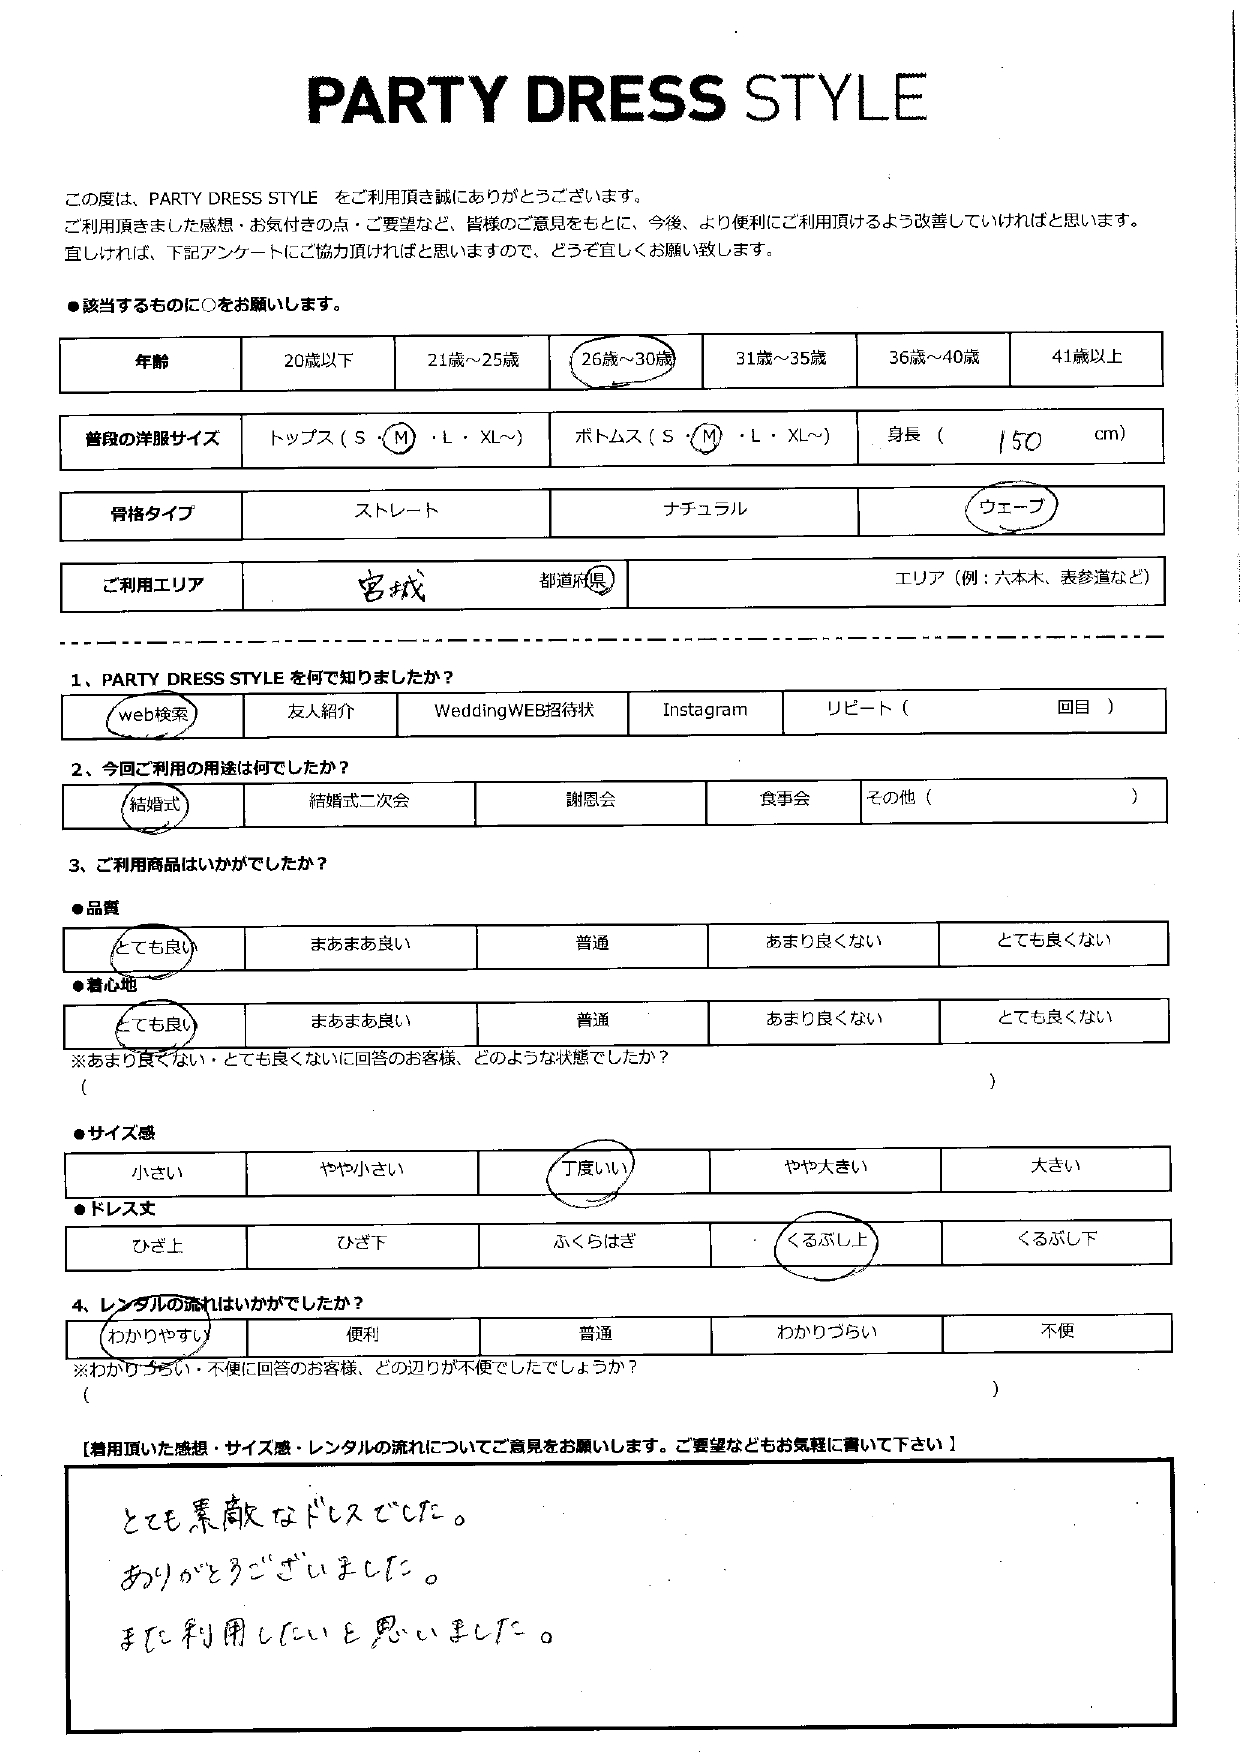 PARTY DRESS STYLE
この度は、PARTY DRESS STYLE をご利用頂き誠にありがとうございます。
ご利用頂きました感想・お気付きの点・ご要望など、皆様のご意見をもとに、今後、より便利にご利用頂けるよう改善していければと思います。
宜しければ、下記アンケートにご協力頂ければと思いますので、どうぞ宜しくお願い致します。
●該当するものに○をお願いします。
年齢 20歳以下 21歳～25歳 26歳～30歳 31歳～35歳 36歳～40歳 41歳以上
普段の洋服サイズ トップス（ S ・ M ・ L ・ XL～） ボトムス（ S ・ M ・ L ・ XL～） 身長 （ 150 cm）
骨格タイプ ストレート ナチュラル ウェーブ
ご利用エリア 宮城 都道府県 エリア（例：六本木、表参道など）
1、PARTY DRESS STYLE を何で知りましたか？
web検索 友人紹介 WeddingWEB招待状 Instagram リピート（ 回目 ）
2、今回ご利用の用途は何でしたか？
結婚式 結婚式二次会 謝恩会 食事会 その他（ ）
3、ご利用商品はいかがでしたか？
●品質
とても良い まあまあ良い 普通 あまり良くない とても良くない
●着心地
とても良い まあまあ良い 普通 あまり良くない とても良くない
※あまり良くない・とても良くないに回答のお客様、どのような状態でしたか？
（ ）
●サイズ感
小さい やや小さい 丁度いい やや大きい 大きい
●ドレス丈
ひざ上 ひざ下 ふくらはぎ くるぶし上 くるぶし下
4、レンタルの流れはいかがでしたか？
わかりやすい 便利 普通 わかりづらい 不便
※わかりづらい・不便に回答のお客様、どの辺りが不便でしたでしょうか？
（ ）
【着用頂いた感想・サイズ感・レンタルの流れについてご意見をお願いします。ご要望などもお気軽に書いて下さい】
とても素敵なドレスでした。
ありがとうございました。
また利用したいと思いました。